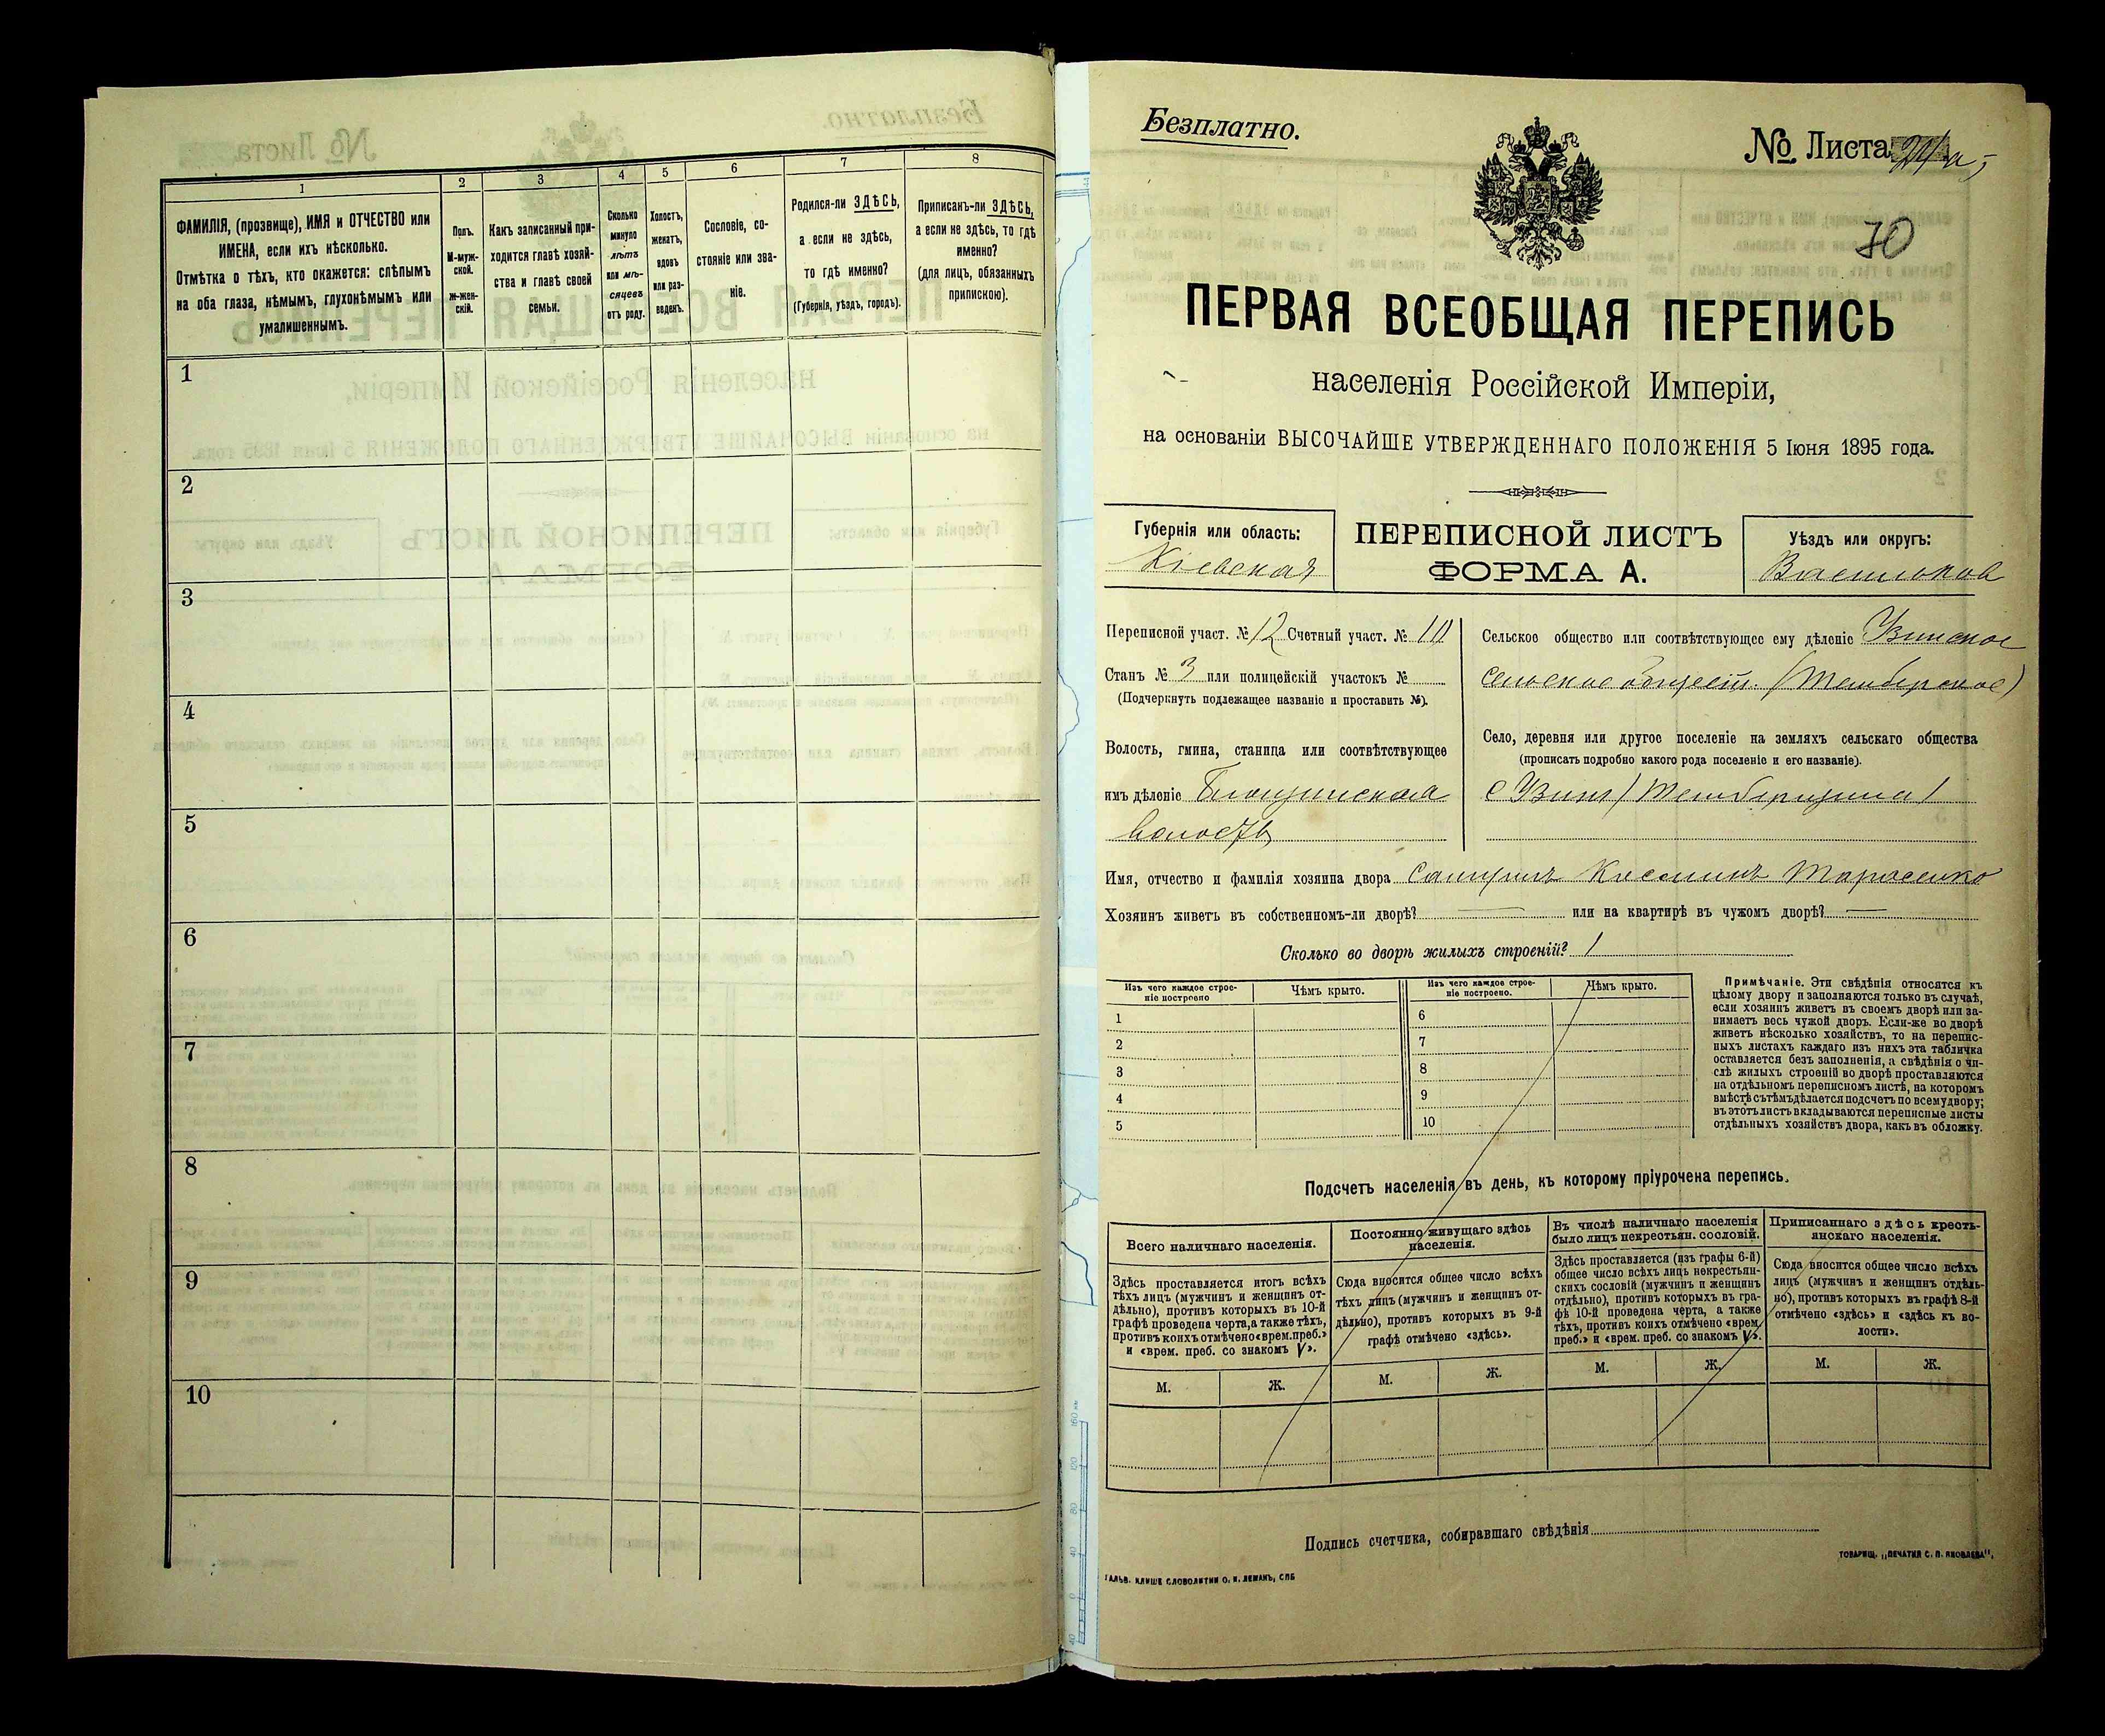 1
2
3
4
5
6
7
8
ФАМИЛІЯ, (прозвище), ИМЯ и ОТЧЕСТВО или
ИМЕНА, если ихъ нѣсколько.
Отмѣтка о тѣхъ, кто окажется: слѣпымъ
на оба глаза, нѣмымъ, глухонѣмымъ или
умалишеннымъ.
Полъ.
М-муж-
ской.
Ж-жен-
скій.
Какъ записанный при-
ходится главѣ хозяй-
ства и главѣ своей
семьи.
Сколько
минуло
лѣтъ
или мѣ-
сяцевъ
отъ роду.
Холостъ,
женатъ,
вдовъ
или раз-
веденъ.
Сословіе, со-
стояніе или зва-
ніе.
Родился-ли ЗДѢСЬ,
а если не здѣсь,
то гдѣ именно?
(Губернія, уѣздъ, городъ).
Приписанъ-ли ЗДѢСЬ,
а если не здѣсь, то гдѣ
именно?
(для лицъ, обязанныхъ
припискою).
1
2
3
4
5
6
7
8
9
10
Безплатно.
№ Листа
70
ПЕРВАЯ ВСЕОБЩАЯ ПЕРЕПИСЬ
населенія Россійской Имперіи,
на основаніи ВЫСОЧАЙШЕ УТВЕРЖДЕННАГО ПОЛОЖЕНІЯ 5 Іюня 1895 года.
Губернія или область:
Кіевская
ПЕРЕПИСНОЙ ЛИСТЪ
ФОРМА А.
Уѣздъ или округъ:
Васильков
Переписной участ. № 12 Счетный участ. №
Станъ № 3 или полицейскій участокъ №
(Подчеркнуть подлежащее названіе и проставить №).
Волость, гмина, станица или соотвѣтствующее
имъ дѣленіе
волость
Сельское общество или соотвѣтствующее ему дѣленіе Узинское
сельское обществ.
Село, деревня или другое поселеніе на земляхъ сельскаго общества
(прописать подробно какого рода поселеніе и его названіе).
с Узин
Имя, отчество и фамилія хозяина двора Тарасенко
Хозяинъ живетъ въ собственномъ-ли дворѣ? или на квартирѣ въ чужомъ дворѣ?
Сколько во дворѣ жилыхъ строеній? 1
Изъ чего каждое строе-
ніе построено
Чѣмъ крыто.
Изъ чего каждое строе-
ніе построено.
Чѣмъ крыто.
1
2
3
4
5
6
7
8
9
10
Примѣчаніе. Эти свѣдѣнія относятся къ
цѣлому двору и заполняются только въ случаѣ,
если хозяинъ живетъ въ своемъ дворѣ или за-
нимаетъ весь чужой дворъ. Если-же во дворѣ
живетъ нѣсколько хозяйствъ, то на перепис-
ныхъ листахъ каждаго изъ нихъ эта табличка
оставляется безъ заполненія, а свѣдѣнія о чи-
слѣ жилыхъ строеній во дворѣ проставляются
на отдѣльномъ переписномъ листѣ, на которомъ
вмѣстѣ съ тѣмъ дѣлается подсчетъ по всему двору;
въ этотъ листъ вкладываются переписные листы
отдѣльныхъ хозяйствъ двора, какъ въ обложку.
Подсчетъ населенія въ день, къ которому пріурочена перепись.
Всего наличнаго населенія.
Постоянно живущаго здѣсь
населенія.
Въ числѣ наличнаго населенія
было лицъ некрестьян. сословій.
Приписаннаго здѣсь кресть-
янскаго населенія.
Здѣсь проставляется итогъ всѣхъ
тѣхъ лицъ (мужчинъ и женщинъ от-
дѣльно), противъ которыхъ въ 10-й
графѣ проведена черта, а также тѣхъ,
противъ коихъ отмѣчено «врем. преб.»
и «врем. преб. со знакомъ V».
Сюда вносится общее число всѣхъ
тѣхъ лицъ (мужчинъ и женщинъ от-
дѣльно), противъ которыхъ въ 9-й
графѣ отмѣчено «здѣсь».
Здѣсь проставляется (изъ графы 6-й)
общее число всѣхъ лицъ некрестьян-
скихъ сословій (мужчинъ и женщинъ
отдѣльно), противъ которыхъ въ гра-
фѣ 10-й проведена черта, а также
тѣхъ, противъ коихъ отмѣчено «врем.
преб.» и «врем. преб. со знакомъ V».
Сюда вносится общее число всѣхъ
лицъ (мужчинъ и женщинъ отдѣль-
но), противъ которыхъ въ графѣ 8-й
отмѣчено «здѣсь» и «здѣсь къ во-
лости».
М. Ж. М. Ж. М. Ж. М. Ж.
Подпись счетчика, собиравшаго свѣдѣнія
ТОВАРИЩ. „ПЕЧАТНЯ С. П. ЯКОВЛЕВА".
ГАЛЬВ. КЛИШЕ СЛОВОЛИТНИ О. И. ЛЕМАНЪ, СПБ